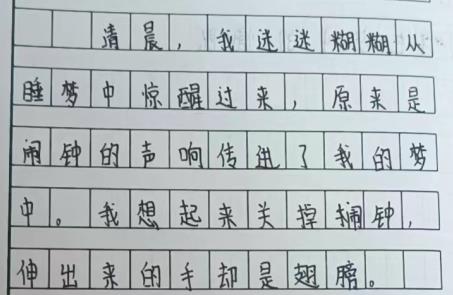 清晨，我迷迷糊糊从
睡梦中惊醒过来，原来是
闹钟的声响传进了我的梦
中。我想起来关掉闹钟，
伸出来的手却是翅膀。